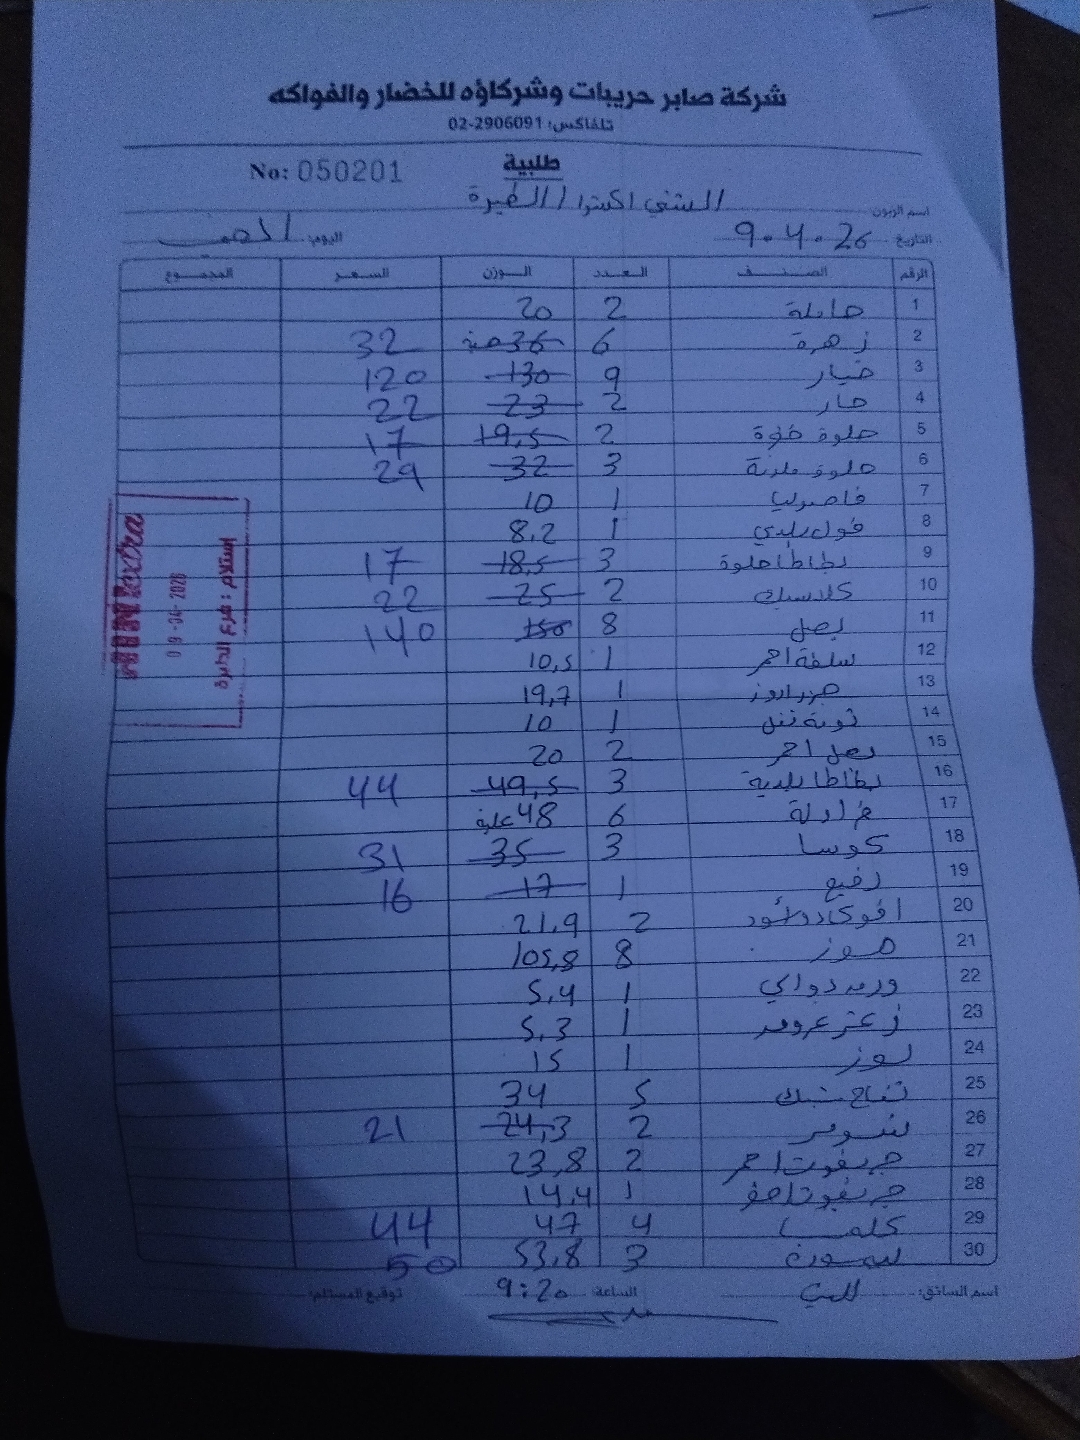 شركة صابر حريبات وشركاؤه للخضار والفواكه
تلفاكس: 02-2906091
طلبية
No: 050201
اسم الزبون: الشني اكسترا / الطيرة
التاريخ: 9.4.26 اليوم:
الرقم الصنف العدد الوزن السعر المجموع
1 2 20
2 زهرة 6 36 32
3 خيار 9 130 120
4 حار 2 23 22
5 حلوة 2 19,5 17
6 حلوة ملونة 3 32 29
7 فاصوليا 1 10
8 فول بلدي 1 8,2
9 بطاطا حلوة 3 18,5 17
10 كلاسيك 2 25 22
11 بصل 8 150 140
12 احمر 1 10,5
13 جزر 1 19,7
14 1 10
15 بصل احمر 2 20
16 بطاطا بلدية 3 49,5 44
17 6 48 علبة
18 كوسا 3 35 31
19 رفيع 1 17 16
20 افوكادو 2 21,9
21 موز 8 105,8
22 1 5,4
23 زعتر 1 5,3
24 لوز 1 15
25 تفاح 5 34
26 2 24,3 21
27 جريفوت احمر 2 23,8
28 جريفوت 1 14,4
29 4 47 44
30 ليمون 3 53,8 50
اسم السائق: الساعة 9:20 توقيع المستلم:
extra
09-04-2026
استلام : فرع الطيرة